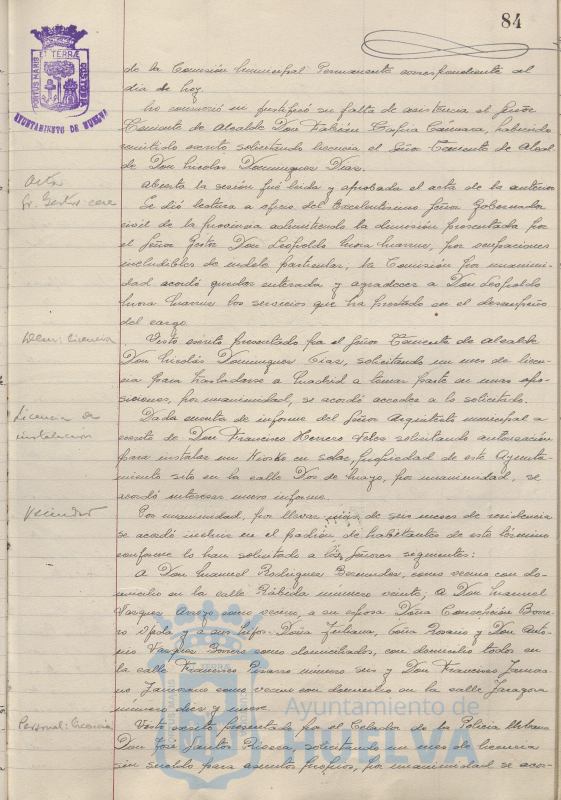 84
PORTUS MARIS ET TERRAE CUSTODIA
AYUNTAMIENTO DE HUELVA
de la Comisión Municipal Permanente correspondiente al
día de hoy.
No concurrió ni justificó su falta de asistencia el Señor
Teniente de Alcalde Don Fabián Cámara, habiendo
remitido escrito solicitando licencia el Señor Teniente de Alcal
de Don Nicolas Dominguez Diaz.
Acta
Abierta la sesión fué leida y aprobada el acta de la anterior
Sr. Gestor cese
Se dió lectura a oficio del Excelentísimo Señor Gobernador
civil de la provincia admitiendo la dimisión presentada por
el Señor Gestor Don Leopoldo, por ocupaciones
ineludibles de indole particular, la Comisión por unanimi-
dad acordó quedar enterada y agradecer a Don Leopoldo
los servicios que ha prestado en el desempeño
del cargo.
Idem: licencia
Visto escrito presentado por el Señor Teniente de Alcalde
Don Nicolás Dominguez Diaz, solicitando un mes de licen-
cia para trasladarse a Madrid a tomar parte en unas opo-
siciones, por unanimidad, se acordó acceder a lo solicitado.
Licencia de
instalación
Dada cuenta de informe del Señor Arquitecto municipal a
escrito de Don Francisco Herrero Velos solicitando autorización
para instalar un Kiosko en solar, propiedad de este Ayunta-
miento sito en la calle Dos de Mayo, por unanimidad, se
acordó interesar nuevo informe.
Por unanimidad, por llevar más de seis meses de residencia
se acordó incluir en el padrón de habitantes de este término
conforme lo han solicitado a los Señores siguientes:
A Don Manuel Rodriguez Bermudez, como vecino con do-
micilio en la calle Rábida número veinte; a Don Manuel
Vasquez Arroyo como vecino, a su esposa Doña Concepción Borre-
ro y a sus hijos Doña Juliana, Doña Rosario y Don Anto-
nio Vasquez Borrero como domiciliados, con domicilio todos en
la calle Francisco Pizarro número seis y Don Francisco Zamora
no Zamorano como vecino con domicilio en la calle Zaragoza
número diez y nueve.
Personal: licencia
Visto escrito presentado por el Celador de la Policía Urbana
Don José Santos Rivera, solicitando un mes de licencia
sin sueldo para asuntos propios, por unanimidad se acor-
Ayuntamiento de
HUELVA